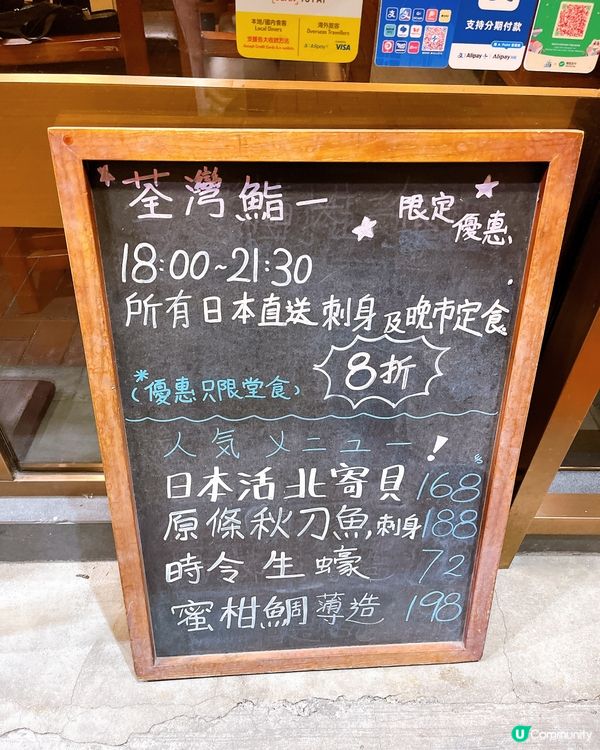 本地/國內食客
Local Diners
支援各大收銀方法
海外旅客
Overseas Travellers
Alipay VISA
支持分期付款
Alipay Alipay
荃灣鮨一 限定
優惠
18:00~21:30
所有日本直送刺身及晚市定食
8折
*(優惠只限堂食)
人気 メニュー!
日本活北寄貝 168
原條秋刀魚,刺身 188
時令生蠔 72
蜜柑鯛薄造 198
U Community